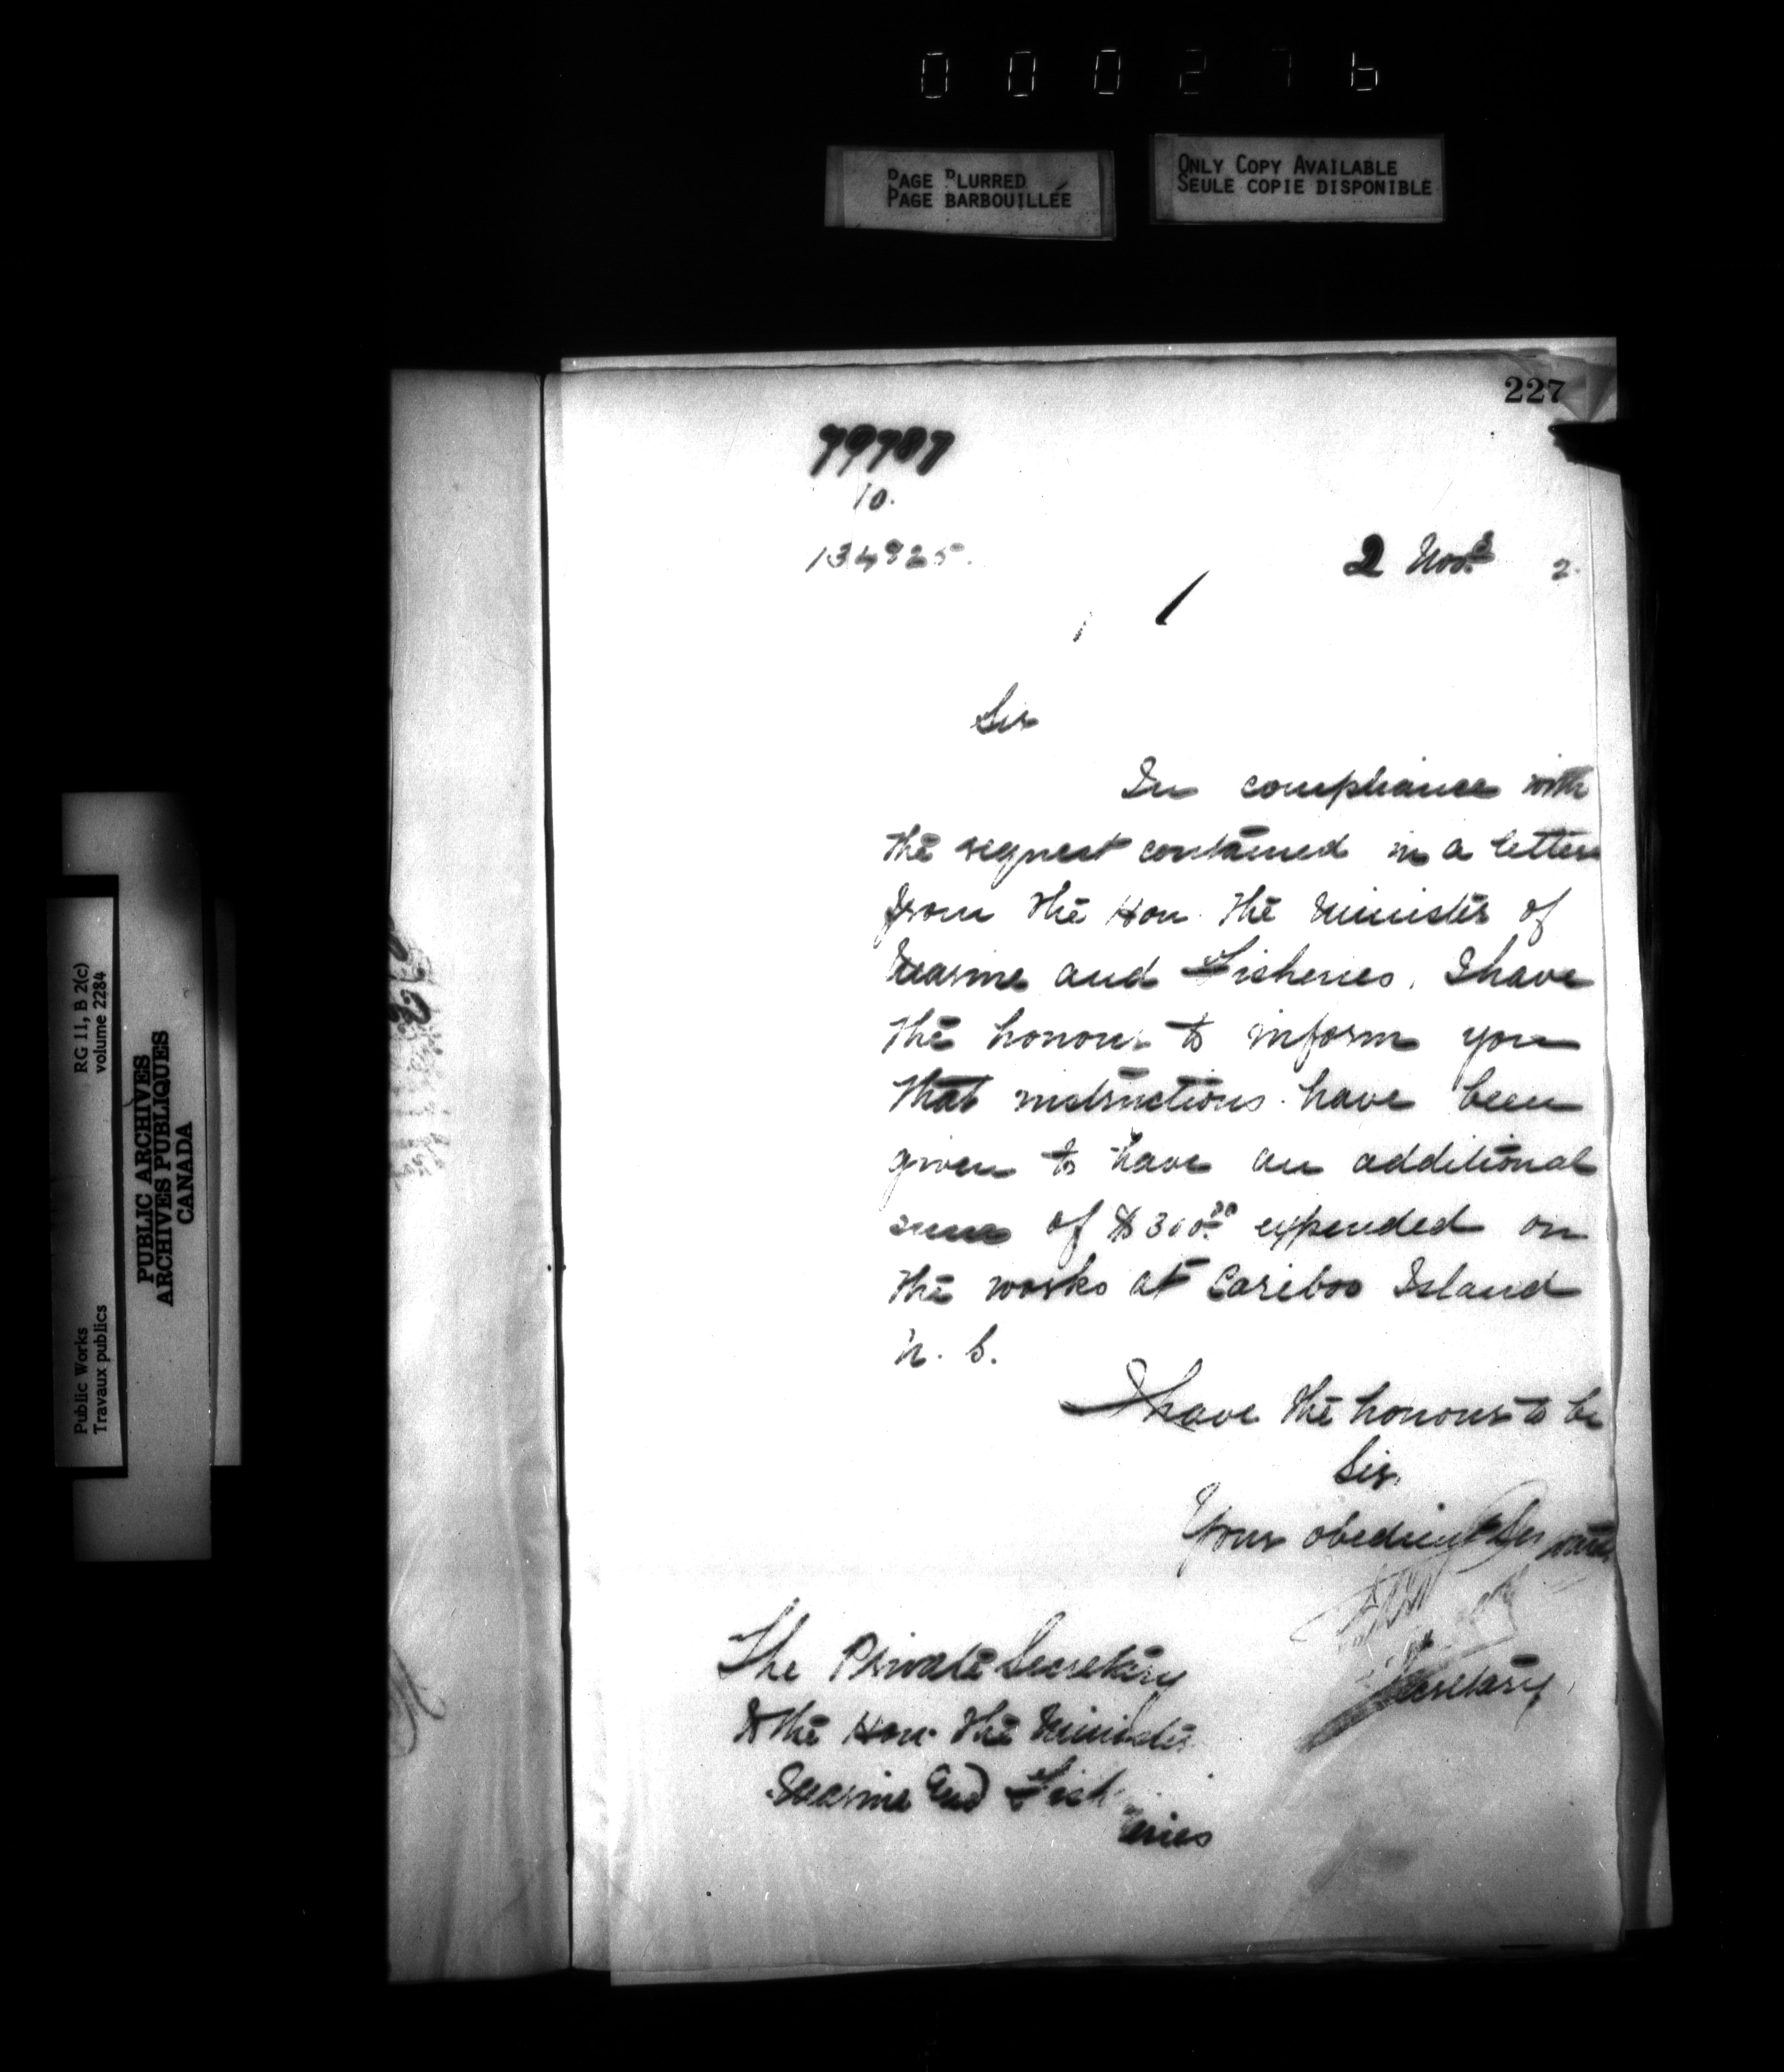 000276
PAGE BLURRED
PAGE BARBOUILLÉE
ONLY COPY AVAILABLE
SEULE COPIE DISPONIBLE
Public Works
Travaux publics
RG 11, B 2(c)
volume 2284
PUBLIC ARCHIVES
ARCHIVES PUBLIQUES
CANADA
227
79787
10.
134925.
2 Novr 2.
Sir
In compliance with
the request contained in a letter
from the Hon. the Minister of
Marine and Fisheries, I have
the honour to inform you
that instructions have been
given to have an additional
sum of $300.00 expended on
the works at Cariboo Island
N. S.
I have the honour to be
Sir,
Your obedient Servant
Secretary,
The Private Secretary
to the Hon. the Minister
Marine and Fish
eries